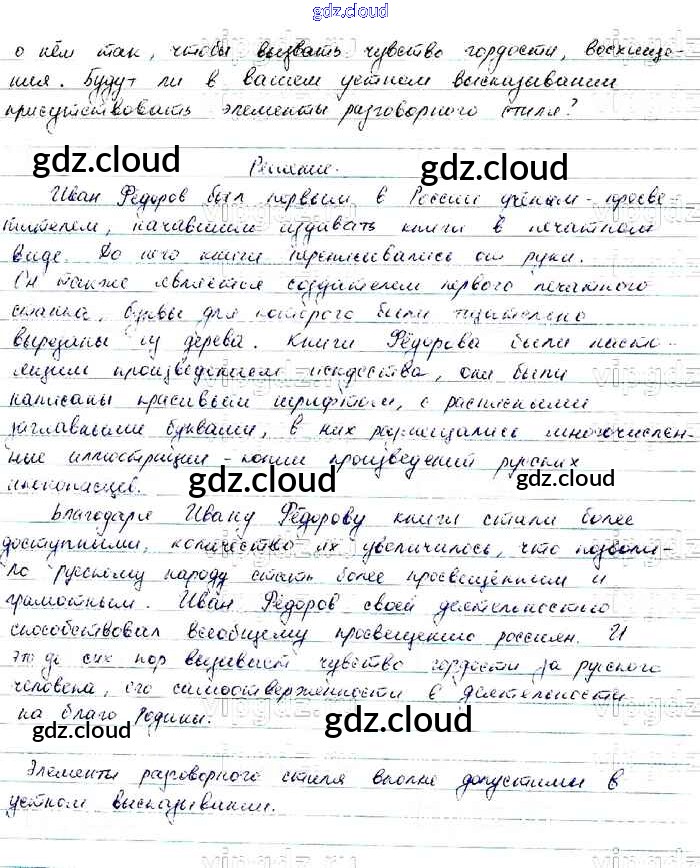 gdz.cloud
о нём так, чтобы вызвать чувство гордости, восхище-
ния. Будут ли в вашем устном высказывании
присутствовать элементы разговорного стиля?
gdz.cloud
gdz.cloud
Решение.
Иван Фёдоров был первым в России учёным-просве-
тителем, начавшим издавать книги в печатном
виде. До него книги переписывались от руки.
Он также является создателем первого печатного
станка, буквы для которого были тщательно
вырезаны из дерева. Книги Фёдорова были насто-
ящим произведением искусства, они были
написаны красивым шрифтом, с расписными
заглавными буквами, в них размещались многочислен-
ные иллюстрации - копии произведений русских
иконописцев.
gdz.cloud
gdz.cloud
Благодаря Ивану Фёдорову книги стали более
доступными, количество их увеличилось, что позволи-
ло русскому народу стать более просвещённым и
грамотным. Иван Фёдоров своей деятельностью
способствовал всеобщему просвещению россиян. И
это до сих пор вызывает чувство гордости за русского
человека, его самоотверженности в деятельности
на благо Родины.
gdz.cloud
gdz.cloud
gdz.cloud
Элементы разговорного стиля вполне допустимы в
устном высказывании.
vipgdz.ru